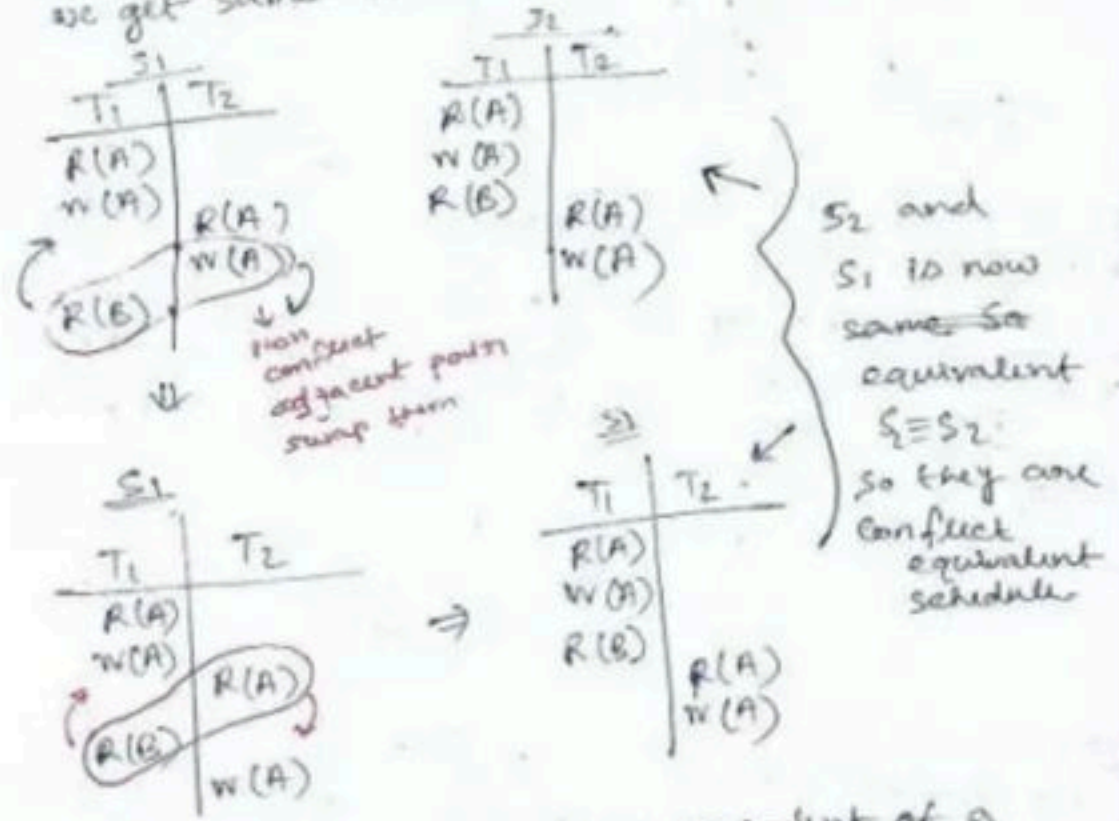 we get same
S1
T1 T2
R(A)
W(A)
R(A)
W(A)
R(B)
non
conflict
adjacent pair
swap them
S2
T1 T2
R(A)
W(A)
R(B)
R(A)
W(A)
S2 and
S1 is now
same So
equivalent
S1≡S2
so they are
conflict
equivalent
schedule
S1
T1 T2
R(A)
W(A)
R(A)
R(B)
W(A)
⇒
S1
T1 T2
R(A)
W(A)
R(B)
R(A)
W(A)
of a